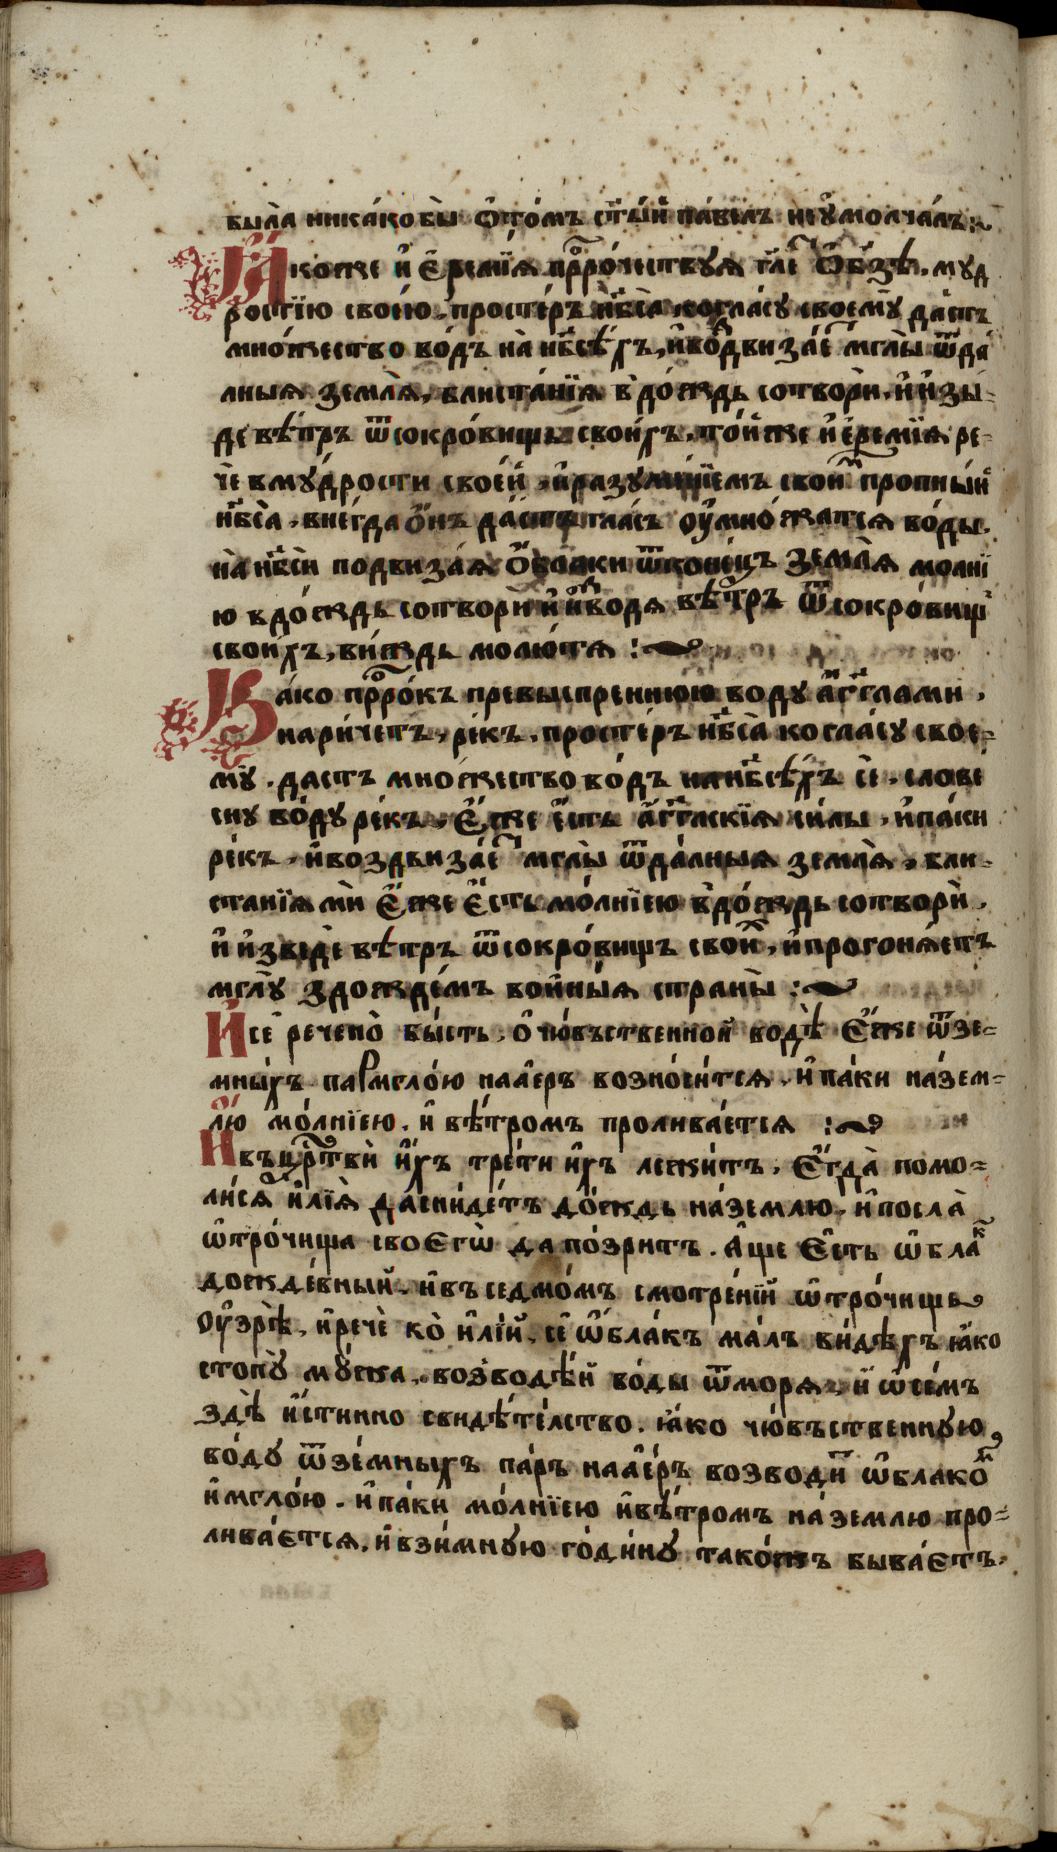 была̀ ника́ко бы̀ ѡ҆то́мъ ст҃ы́й па́велъ не ᲂу҆молча́лъ:
Ꙗ҆́коже и҆ є҆реми́ѧ прⷪ҇ро́чествуѧ гл҃етъ ѡ҆ бз҃ѣ. муд
ростїю свое́ю простеръ нб҃са̀ ко гла́су своемꙋ̀ да́стъ
мно́жество во́дъ на нб҃сѣ́хъ, и҆ воⷥ҇двиза́етъ мглы̀ ѿ да́
лныѧ землѧ̀, блиста́нїѧ в до́ждь сотворѝ. и҆ и҆зы-
де вѣ́тръ ѿ сокро́вищъ свои́хъ. то́йже и҆ є҆реми́ѧ ре-
чѐ в му́дрости свое́й, и҆ разуми́емъ свои́мъ пропны́й
нб҃са̀, внегда̀ о҆́нъ да́стъ гла́съ ᲂу҆мно́жатсѧ во́ды.
на нб҃си подвиза́ѧ о҆́блаки ѿ коне́цъ землѧ̀ молнї
ю в до́ждь сотворѝ и҆ и҆зводѧ вѣ́тръ ѿ сокро́вищъ
свои́хъ, ви́ждь молю́тѧ :
Ꙗ҆́ко прⷪ҇ро́къ превыспреннюю воду а҆́гг҃лами
нарича́етъ, ре́къ. просте́ръ нб҃са̀ ко гла́су свое-
мꙋ̀. дастъ мно́жество во́дъ на нб҃сѣ́хъ сѐ. слове́
сну во́ду ре́къ, є҆́же є҆́сть а҆́гг҃лскїѧ си́лы, и҆ па́ки
ре́къ, и҆ воздвиза́етъ мглы̀ ѿ да́лныѧ землѧ̀, бли-
станїѧми є҆́же є҆́сть мо́лнїею в до́ждь сотворѝ.
и҆ и҆зведѐ вѣтръ ѿ сокро́вищъ свои́хъ, и҆ прогонѧ́етъ
мглу̀ з дожде́мъ во и҆ны́ѧ страны̀ :
И҆ сѐ речено̀ бы́сть, ѡ҆ чю́въственной водѣ̀ є҆́же ѿ зе-
мны́хъ па́ръ мгло́ю на а҆еръ возно́ситсѧ. и҆ па́ки на зем-
лю̀ мо́лнїею. и҆ вѣ́тромъ пролива́етсѧ :
И҆ въ црⷭ҇тви и҆́хъ тре́ти и҆́хъ лежи́тъ. є҆гда̀ помо-
ли́сѧ и҆лїѧ̀ да сни́детъ до́ждь на́ землю. и҆ посла̀
ѡ҆тро́чища своєгѡ̀ да по́зритъ. а҆́ще є҆́сть ѡ҆блакъ
дожде́вный. и҆ въ седмо́мъ смотре́нїй ѡ҆тро́чище
ᲂу҆зрѣ̀, и҆ речѐ ко̀ и҆лїй, сѐ ѡ҆́блакъ ма́лъ ви́дѣхъ ꙗ҆́ко
стопꙋ̀ мꙋ́жа, возводѧ́й во́ды ѿ морѧ, и҆ ѡ҆ се́мъ
здѣ̀ и҆́стинно свидѣ́телство. ꙗ҆́ко чю́въственную
во́ду ѿ зе́мныхъ па́ръ на а҆́еръ возводи́тъ ѡ҆́блакомъ
и҆ мгло́ю. и҆ па́ки мо́лнїею и҆ вѣ́тромъ на́ землю про-
лива́єтсѧ, и҆ в зи́мнꙋю го́дину тако́жъ быва́єтъ.